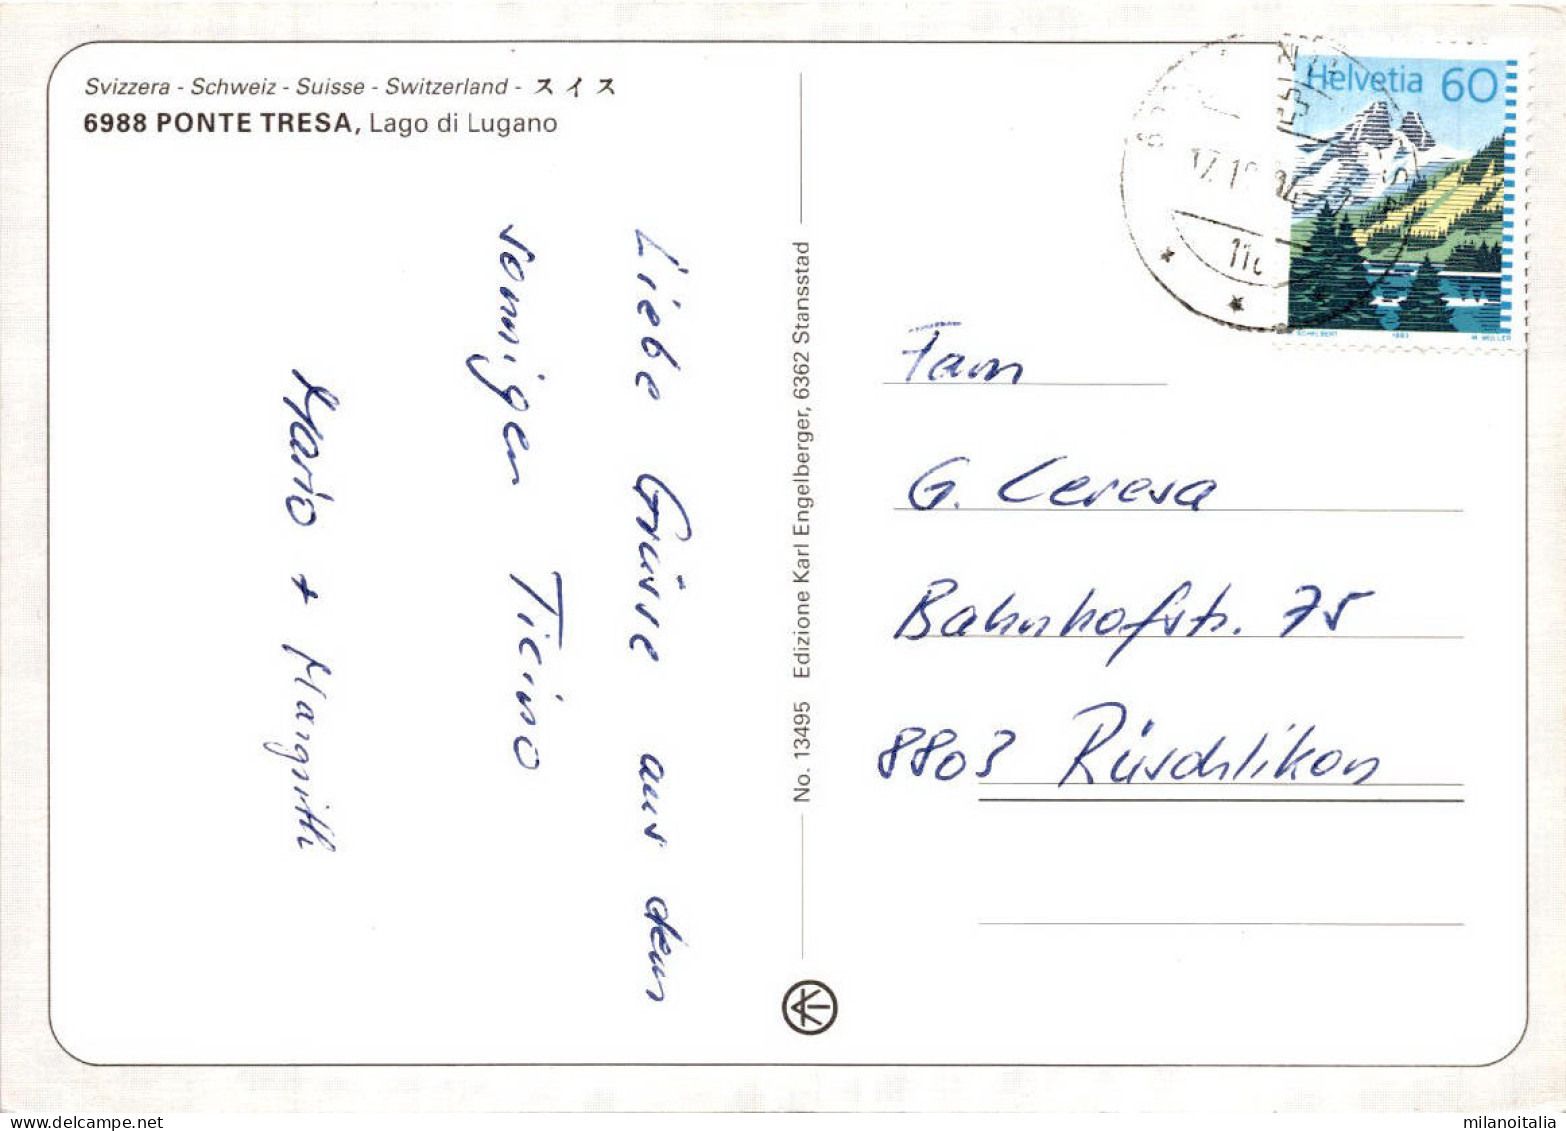 Svizzera - Schweiz - Suisse - Switzerland - スイス
6988 PONTE TRESA, Lago di Lugano
Liebe Grüsse aus dem
sonnigen Ticino
Mario + Margrith
No. 13495 Edizione Karl Engelberger, 6362 Stansstad
Helvetia 60
1993
M. MÜLLER
17.10.94
Fam
G. Ceresa
Bahnhofstr. 75
8803 Rüschlikon
milanoitalia